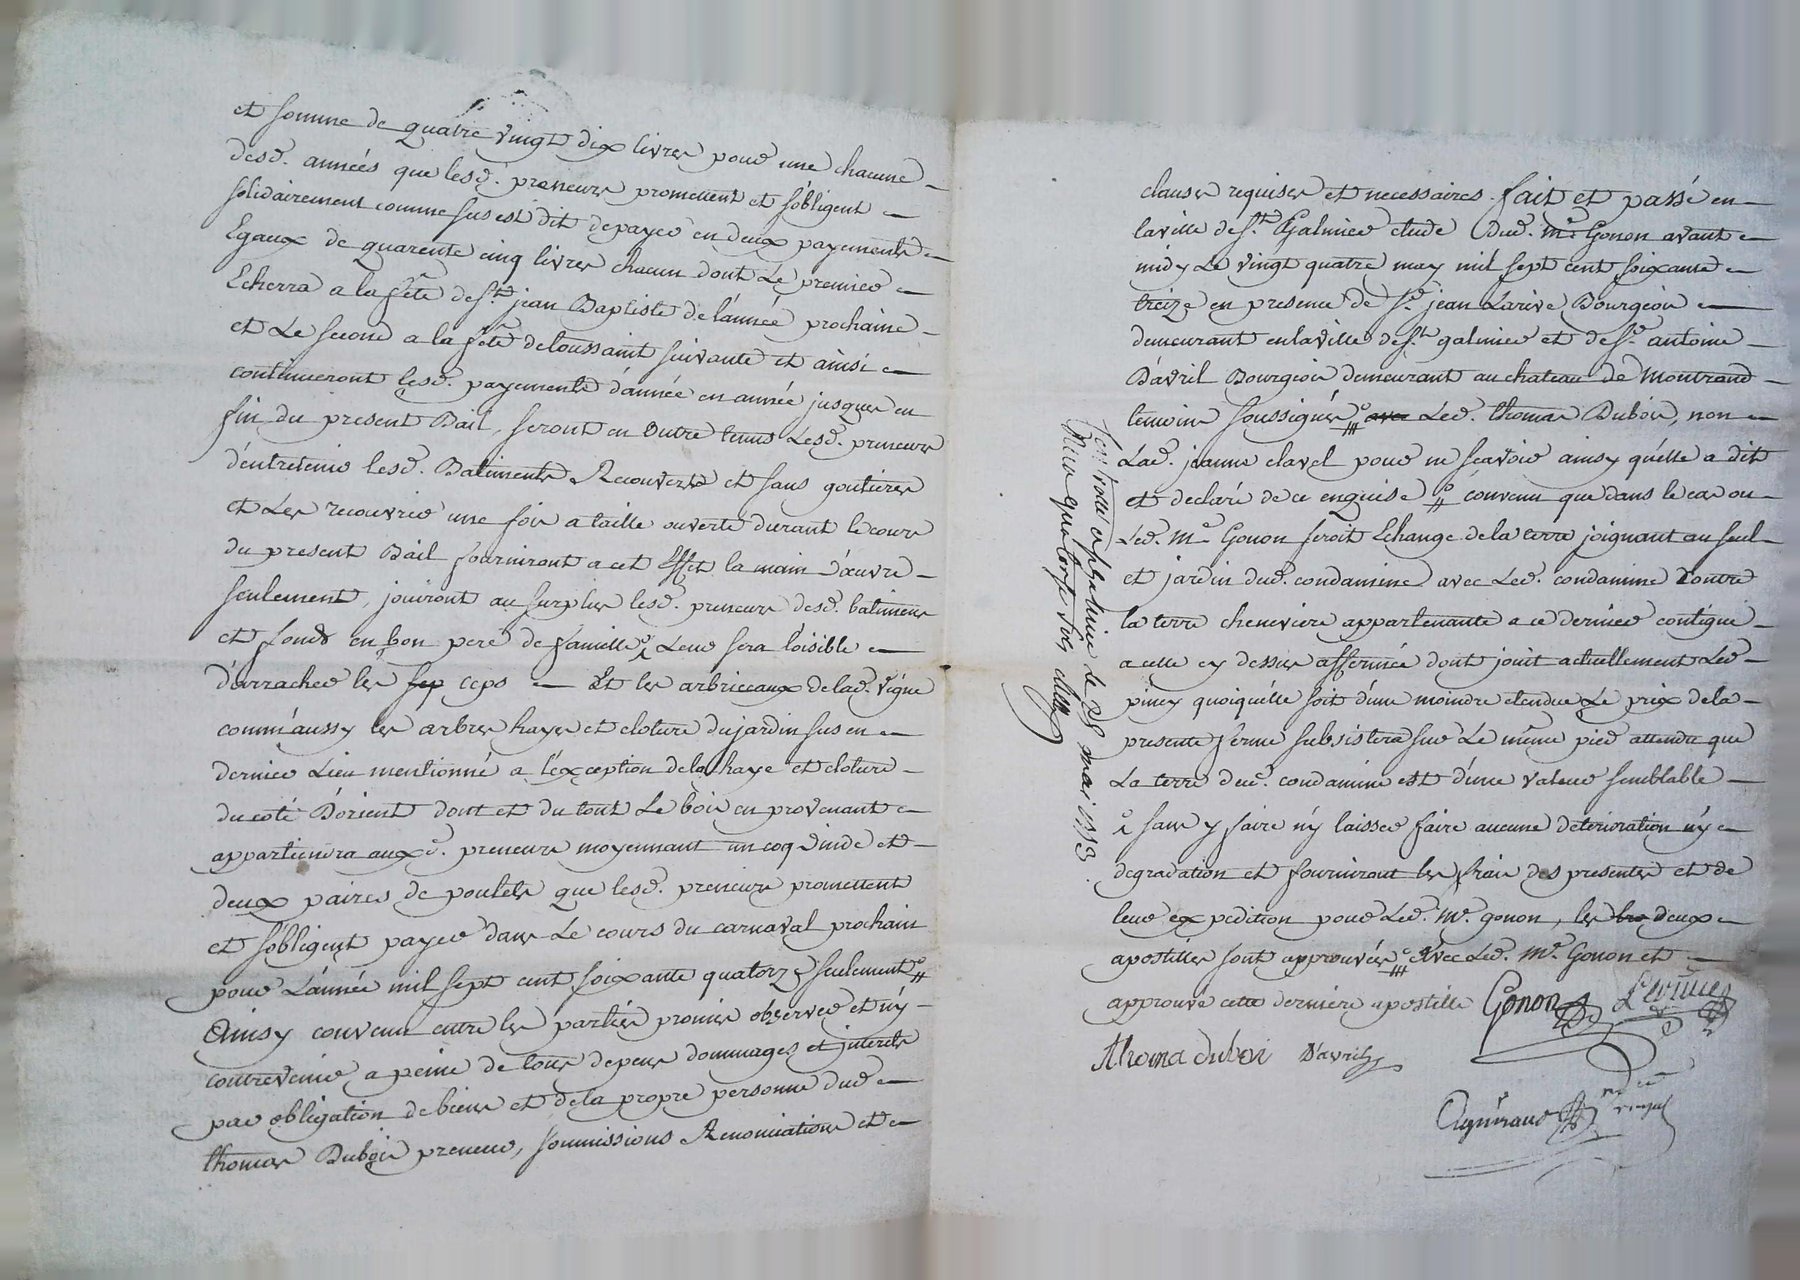 et somme de quatre vingt dix livres pour une chacune
desd. années que lesd. preneurs promettent et s'obligent
solidairement comme sus est dit de payer en deux payements
Egaux de quarente cinq livres chacun dont Le premier
Echerra a la fête de st jean Baptiste de l'année prochaine
et Le second a la fête de toussaint suivante et ainsi
continueront lesd. payements d'année en année jusques en
fin du present Bail, seront en outre tenus Lesd. preneurs
d'entretenir lesd. Batiments Recouverts et sans goutieres
et Les recouvrir une fois a taille ouverte durant le cours
du present Bail fourniront a cet Effet la main d'œuvre
seulement, jouiront au surplus lesd. preneurs desd. batiments
et fonds en bon pere de famille Leur sera loisible
d'arracher les sep ceps Et les arbriceaux de lad. vigne
comm'aussy les arbres hayes et cloture du jardin sus en
dernier Lieu mentionné a l'exception de la haye et cloture
du coté D'orient dont et du tout Le bois en provenant
appartiendra auxd. preneurs moyennant un coq d'inde et
deux paires de poulets que lesd. preneurs promettent
et s'obligent payer dans Le cours du carnaval prochain
pour L'année mil sept cent soixante quatorze seulement
Ainsy convenu entre les parties promis observer et n'y
contrevenir a peine de tous depens dommages et interets
par obligation de biens et de la propre personne dud.
thomas Dubois preneur, soumissions Renonciations et
clauses requises et necessaires. fait et passé en
la ville de st. Galmier etude dud. me. Gonon avant
midy Le vingt quatre may mil sept cent soixante
treize en presence de sr. jean Larive Bourgeois
demeurant en la ville de st. galmier et de sr. antoine
D'avril Bourgeois demeurant au chateau de Montrond
temoins soussignés avec Led. thomas Dubois, non
Lad. jeanne clavel pour ne scavoir ainsy qu'elle a dit
et declaré de ce enquise convenu que dans le cas ou
Led. Me Gonon feroit Echange de la terre joignant au seul
et jardin dud. condamine avec Led. condamine Contre
la terre cheneviere appartenante a ce dernier contigue
a celle cy dessus affermée dont jouit actuellement Led.
piney quoiqu'elle soit d'une moindre etendue Le prix de la
presente ferme subsistera sur Le même pied attendu que
La terre dud. condamine est d'une valeur semblable
sans y faire n'y laisser faire aucune deterioration n'y
degradation et fourniront les frais des presentes et de
leur expedition pour Led. Me. gonon, les deux
apostilles sont approuvées avec Led. Me. Gonon et
approuvé cette derniere apostille Gonon
thoma duboi D'avril
a st galmier le 28 mai 1773
quatorze sols